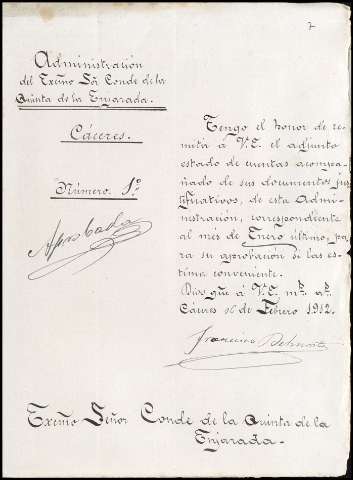 7
Administración
del Exmo Sr Conde de la
Quinta de la Enjarada.
Cáceres.
Número. 1º
Aprobada
Tengo el honor de re-
mitir á V.E. el adjunto
estado de cuentas acompa-
ñado de sus documentos jus-
tificativos, de esta Admi-
nistración, correspondiente
al més de Enero último, pa-
ra su aprobación si las es-
tima conveniente.
Dios gue á V.E. ms as
Cáceres 16 de Febrero 1912.
Francisco
Exmo Señor Conde de la Quinta de la
Enjarada.